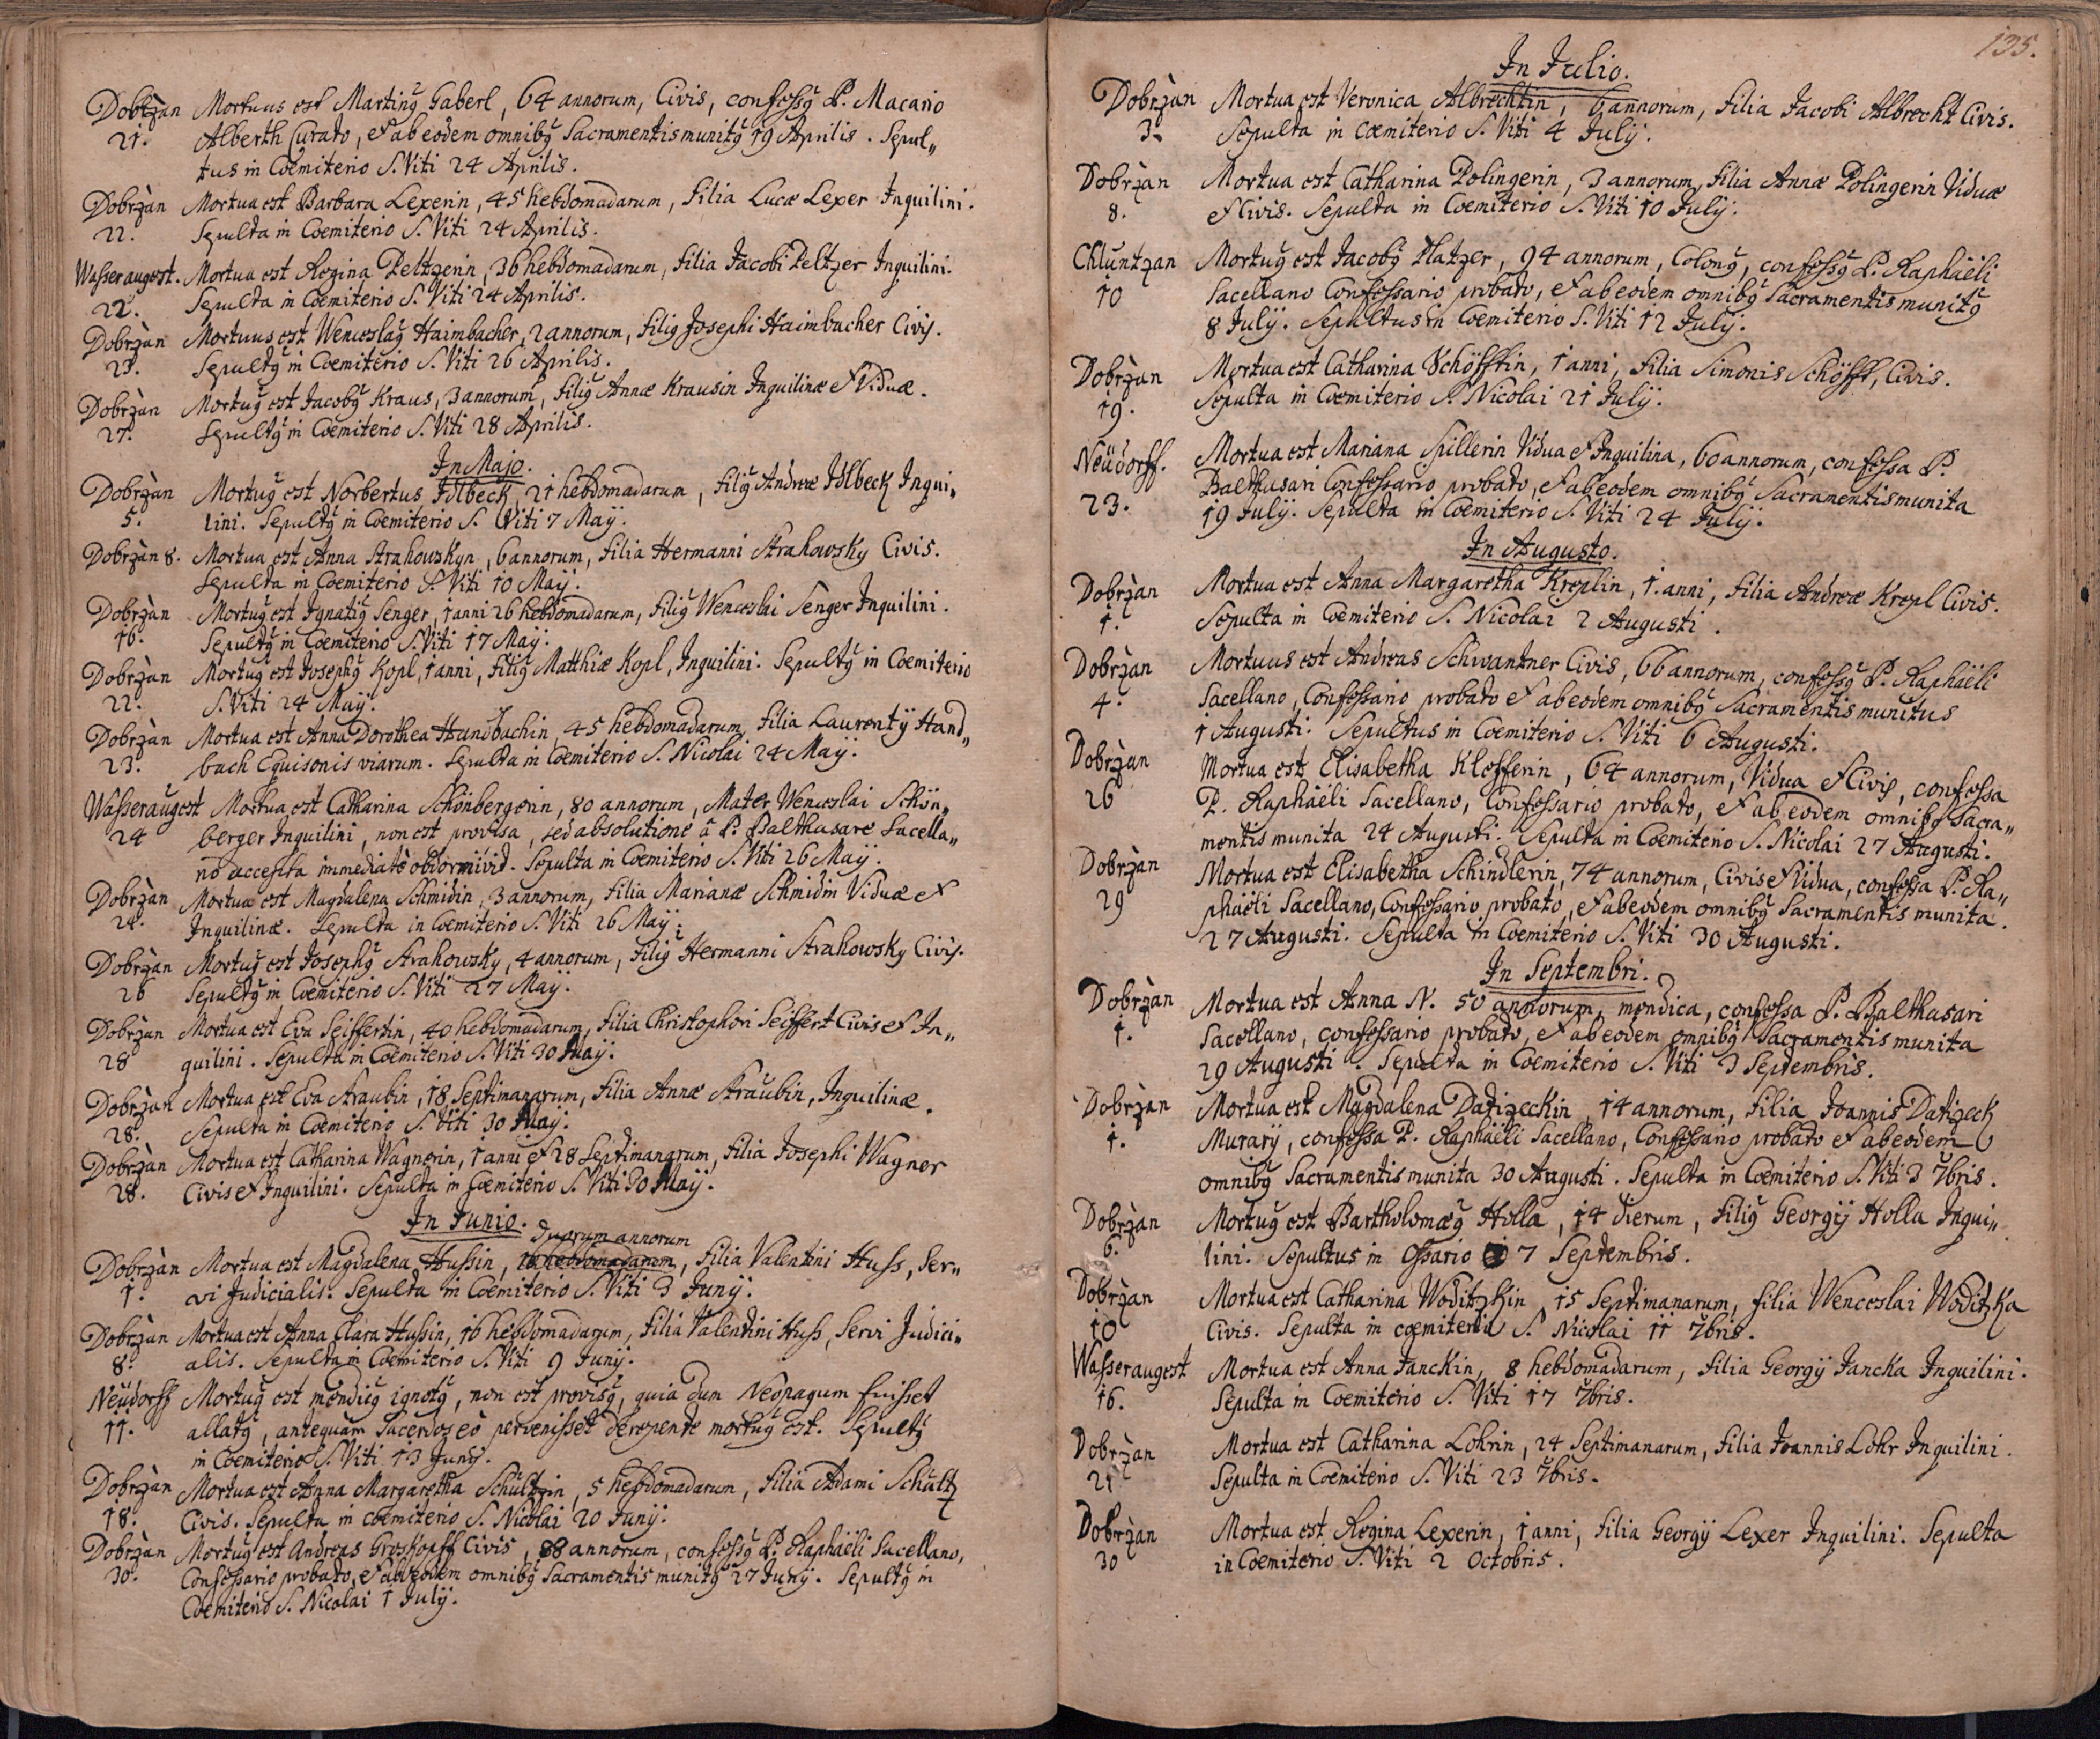 Dobrzàn Mortuus est Martinꝰ Gaberl, 64 annorum, Civis, confessꝰ P. Macario
21. Alberth Curato, et ab eodem omnibꝰ Sacramentis munitꝰ 19 Aprilis. Sepul„
tus in Coemiterio S. Viti 24 Aprilis.
Dobrzàn Mortua est Barbara Lexerin, 45 hebdomadarum, filia Lucæ Lexer Inquilini.
22. Sepulta in Coemiterio S. Viti 24 Aprilis.
Wasseraugest. Mortua est Regina Peltzerin, 36 hebdomadarum, filia Jacobi Peltzer Inquilini.
22. Sepulta in Coemiterio S. Viti 24 Aprilis.
Dobrzàn Mortuus est Wenceslaꝰ Haimbacher, 2 annorum, filiꝰ Josephi Haimbacher Civis.
23. Sepultꝰ in Coemiterio S. Viti 26 Aprilis.
Dobrzàn Mortuꝰ est Jacobꝰ Kraus, 3 annorum, filiꝰ Annæ Krausin Inquilinæ et Viduæ.
27. Sepultꝰ in Coemiterio S. Viti 28 Aprilis.
In Majo.
Dobrzàn Mortuꝰ est Norbertus Idlbeck, 21 hebdomadarum, filiꝰ Andreæ Idlbeck Inqui„
5. lini. Sepultꝰ in Coemiterio S. Viti 7 Maij.
Dobrzàn 8. Mortua est Anna Strahowskyn, 6 annorum, filia Hermanni Strahowsky Civis.
Sepulta in Coemiterio S. Viti 10 Maij.
Dobrzàn Mortuꝰ est Ignatiꝰ Senger, 1 anni 26 hebdomadarum, filiꝰ Wenceslai Senger Inquilini.
16. Sepultꝰ in Coemiterio S. Viti 17 Maij.
Dobrzàn Mortuꝰ est Josephꝰ Kopl, 1 anni, filiꝰ Matthiæ Kopl, Inquilini. Sepultꝰ in Coemiterio
22. S. Viti 24 Maij.
Dobrzàn Mortua est Anna Dorothea Handbachin, 45 hebdomadarum, filia Laurentij Hand„
23. bach Equisonis viarum. Sepulta in Coemiterio S. Nicolai 24 Maij.
Wasseraugest Mortua est Catharina Schönbergerin, 80 annorum, Mater Wenceslai Schön„
24 berger Inquilini, non est provisa, sed absolutione â P. Balthasare Sacella„
no accepta immediatè obdormivid. Sepulta in Coemiterio S. Viti 26 Maij.
Dobrzàn Mortua est Magdalena Schmidin, 3 annorum, filia Marianæ Schmidin Viduæ et
24. Inquilinæ. Sepulta in Coemiterio S. Viti 26 Maij.
Dobrzàn Mortuꝰ est Josephꝰ Strahowsky, 4 annorum, filiꝰ Hermanni Strahowsky Civis.
26 Sepultꝰ in Coemiterio S. Viti 27 Maij.
Dobrzàn Mortua est Eva Seiffertin, 40 hebdomadarum, filia Christophori Seiffert Civis et In„
28 quilini. Sepulta in Coemiterio S. Viti 30 Maij.
Dobrzàn Mortua est Eva Straubin, 18 Septimanarum, filia Annæ Straubin, Inquilinæ.
28. Sepulta in Coemiterio S. Viti 30 Maij.
Dobrzàn Mortua est Catharina Wagnerin, 1 anni et 28 Septimanarum, filia Josephi Wagner
28. Civis et Inquilini. Sepulta in Coemiterio S. Viti 30 Maij.
In Junio.
Duorum annorum
Dobrzàn Mortua est Magdalena Hussin, 16 hebdomadarum, filia Valentini Huss, Ser„
1. vi Judicialis. Sepulta in Coemiterio S. Viti 3 Junij.
Dobrzàn Mortua est Anna Clara Hussin, 16 hebdomadarum, filia Valentini Huss, Servi Judici„
8. alis. Sepulta in Coemiterio S. Viti 9 Junij.
Neüdorff Mortuꝰ est mendicꝰ ignotꝰ, non est provisꝰ, quia dum Neopagum fuisset
11. allatꝰ, antequàm Sacerdos eò pervenisset derepente mortuꝰ est. Sepultꝰ
in Coemiterio S. Viti 13 Junij.
Dobrzàn Mortua est Anna Margaretha Schültzin, 5 hebdomadarum, filia Adami Schültz
18. Civis. Sepulta in coemiterio S. Nicolai 20 Junij.
Dobrzàn Mortuꝰ est Andreas Groskopff Civis, 88 annorum, confessꝰ P. Raphaëli Sacellano,
30. Confessario probato, et ab eodem omnibꝰ Sacramentis munitꝰ 27 Junij. Sepultꝰ in
Coemiterio S. Nicolai 1 Julij.
135.
In Julio.
Dobrzàn Mortua est Veronica Albrechtin, 6 annorum, filia Jacobi Albrecht Civis.
3. Sepulta in Coemiterio S. Viti 4 Julij.
Dobrzàn Mortua est Catharina Polingerin, 3 annorum, filia Annæ Polingerin Viduæ
8. et Civis. Sepulta in Coemiterio S. Viti 10 Julij.
Chluntzan Mortuꝰ est Jacobꝰ Platzer, 94 annorum, Colonꝰ, confessꝰ P. Raphaëli
10 Sacellano Confessario probato, et ab eodem omnibꝰ Sacramentis munitꝰ
8 Julij. Sepultus in Coemiterio S. Viti 12 Julij.
Dobrzàn Mortua est Catharina Schöfftin, 1 anni, filia Simonis Schöfft, Civis.
19. Sepulta in Coemiterio S. Nicolai 21 Julij.
Neüdorff. Mortua est Mariana Spillerin Vidua et Inquilina, 60 annorum, confessa P.
23. Balthasari Confessario probato, et ab eodem omnibꝰ Sacramentis munita
19 Julij. Sepulta in Coemiterio S. Viti 24 Julij.
In Augusto.
Dobrzàn Mortua est Anna Margaretha Kreplin, 1. anni, filia Andreæ Krepl Civis.
1. Sepulta in Coemiterio S. Nicolai 2 Augusti.
Dobrzàn Mortuus est Andreas Schwantner Civis, 66 annorum, confessꝰ P. Raphaëli
4. Sacellano, Confessario probato et ab eodem omnibꝰ Sacramentis munitus
1 Augusti. Sepultus in Coemiterio S. Viti 6 Augusti.
Dobrzàn Mortua est Elisabetha Klefferin, 64 annorum, Vidua et Civis, confessa
26 P. Raphaëli Sacellano, Confessario probato, et ab eodem omnibꝰ Sacra„
mentis munita 24 Augusti. Sepulta in Coemiterio S. Nicolai 27 Augusti.
Dobrzàn Mortua est Elisabetha Schindlerin, 74 annorum, Civis et Vidua, confessa P. Ra„
29 phaëli Sacellano, Confessario probato, et ab eodem omnibꝰ Sacramentis munita.
27 Augusti. Sepulta in Coemiterio S. Viti 30 Augusti.
In Septembri.
Dobrzàn Mortua est Anna N. 50 annorum, mendica, confessa P. Balthasari
1. Sacellano, confessario probato, et ab eodem omnibꝰ Sacramentis munita
29 Augusti. Sepulta in Coemiterio S. Viti 3 Septembris.
Dobrzàn Mortua est Magdalena Datizeckin, 14 annorum, filia Joannis Datizeck
1. Murarij, confessa P. Raphaëli Sacellano, Confessario probato et ab eodem
omnibꝰ Sacramentis munita 30 Augusti. Sepulta in Coemiterio S. Viti 3 7bris.
Dobrzàn Mortuꝰ est Bartholomæꝰ Holla, 14 dierum, filiꝰ Georgij Holla Inqui„
6. lini. Sepultus in Ossario 7 Septembris.
Dobrzàn Mortua est Catharina Woditzkin, 15 Septimanarum, filia Wenceslai Woditzka
10 Civis. Sepulta in coemiterio S. Nicolai 11 7bris.
Wasseraugest Mortua est Anna Janckin, 8 hebdomadarum, filia Georgij Jancka Inquilini.
16. Sepulta in Coemiterio S. Viti 17 7bris.
Dobrzàn Mortua est Catharina Lohrin, 24 Septimanarum, filia Joannis Lohr Inquilini.
21 Sepulta in Coemiterio S. Viti 23 7bris.
Dobrzàn Mortua est Regina Lexerin, 1 anni, filia Georgij Lexer Inquilini. Sepulta
30 in Coemiterio S. Viti 2 Octobris.